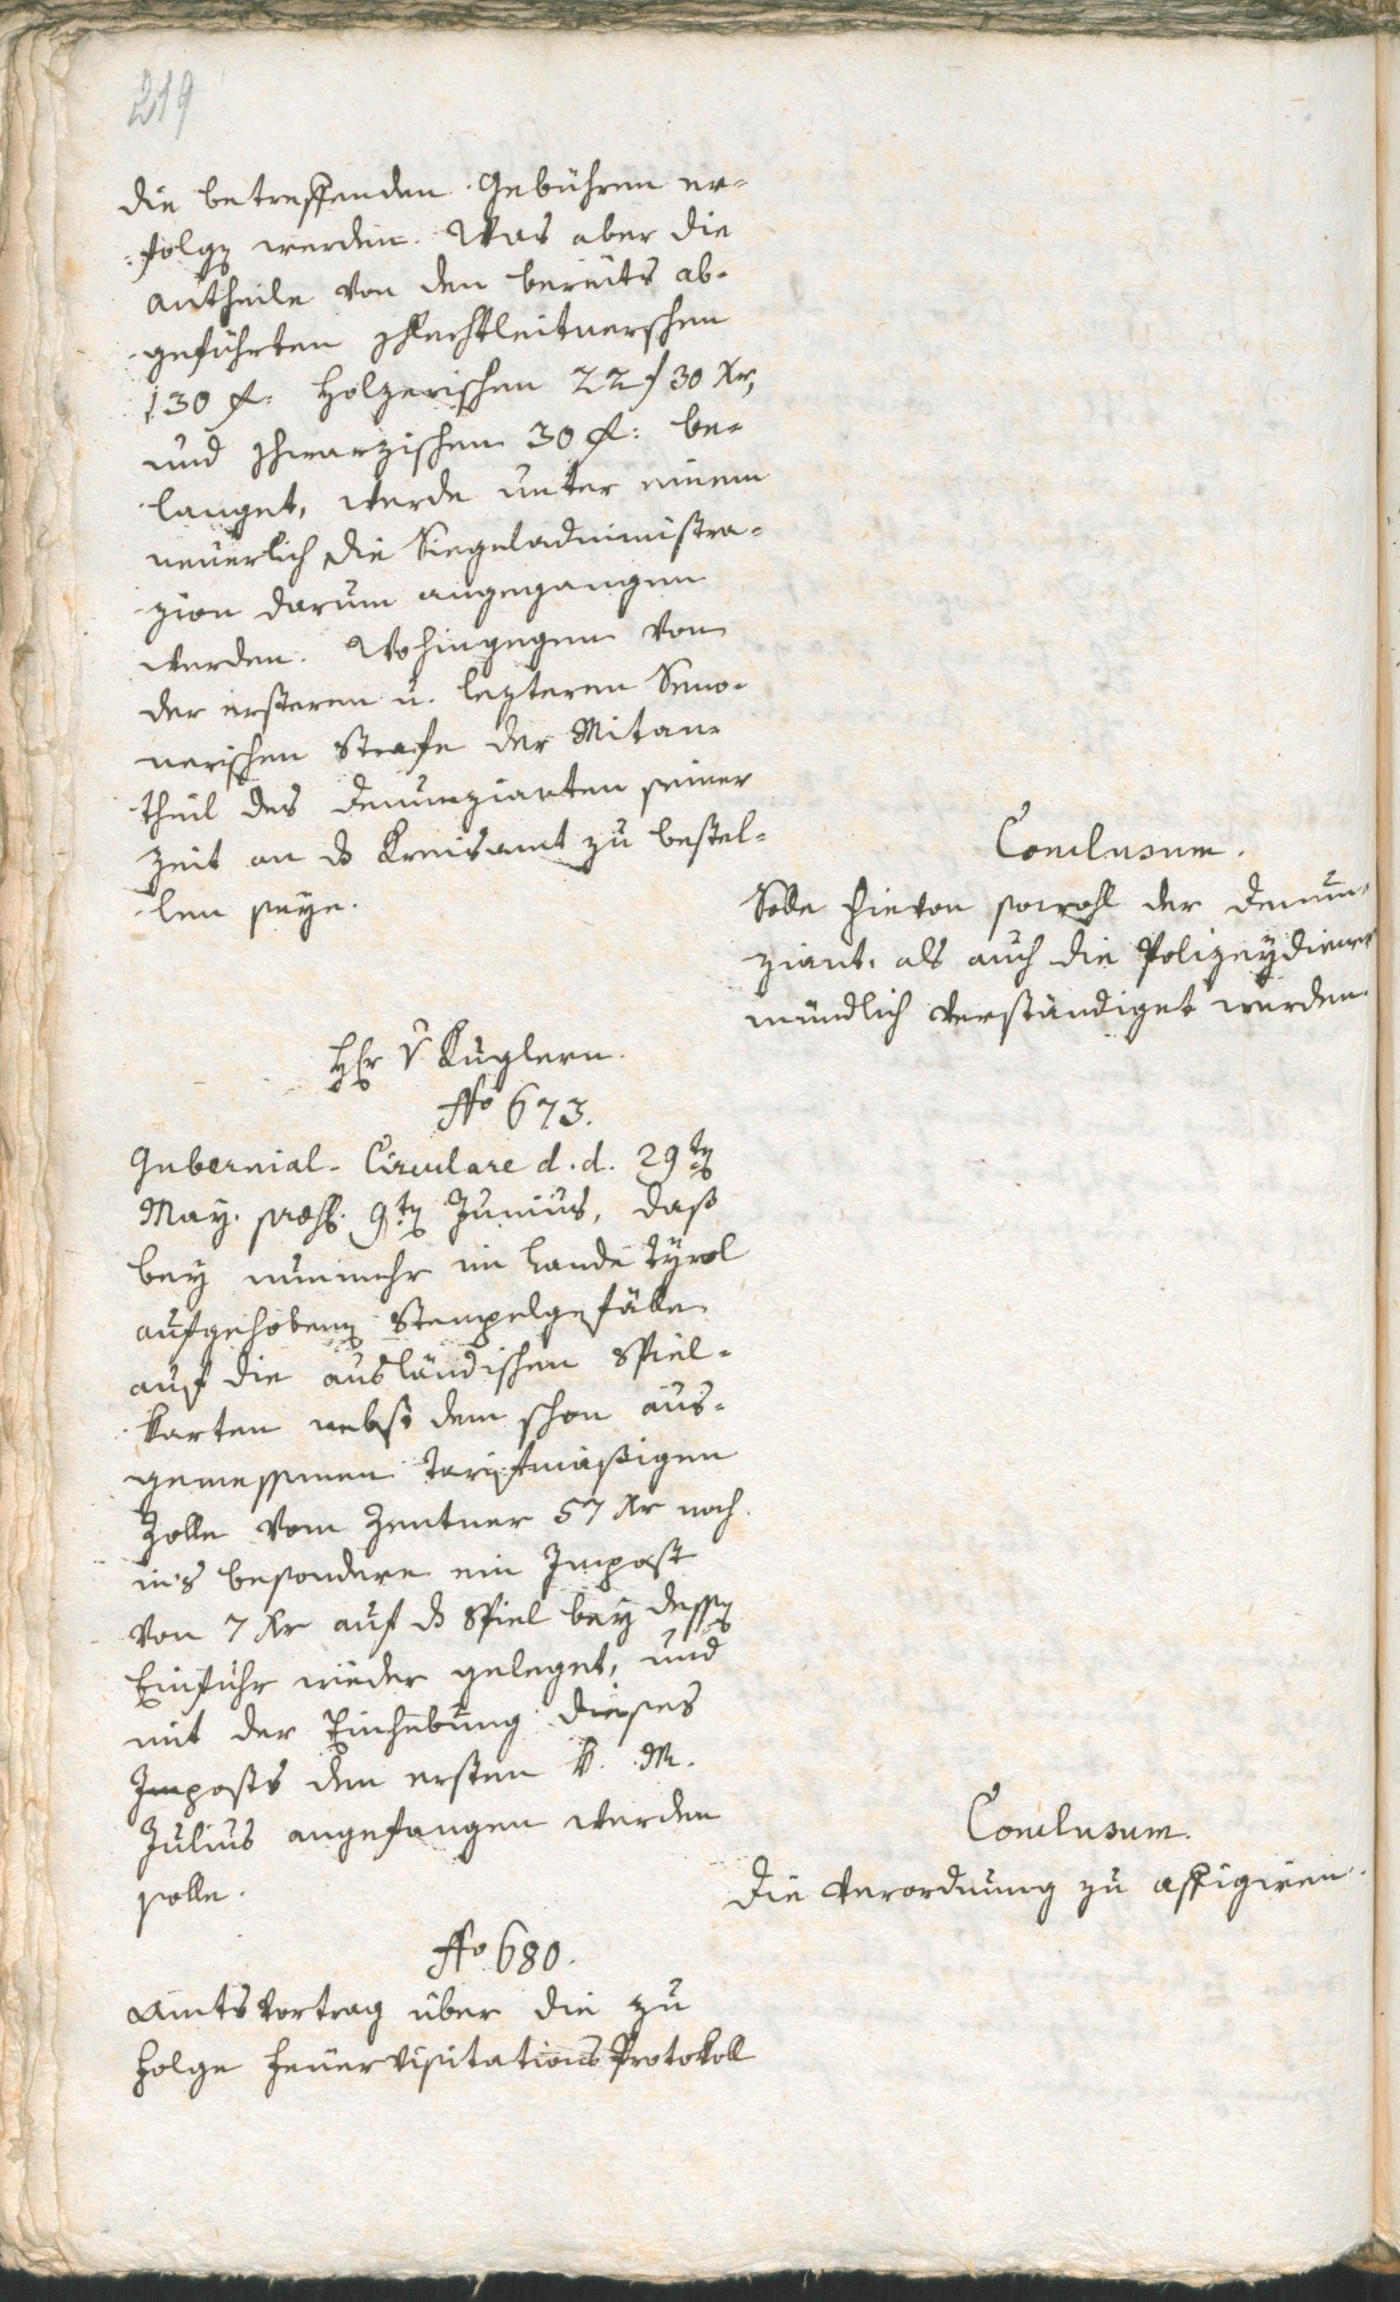 219
die betreffenden Gebühren er-
folgen werden. Was aber die
Antheile von den bereits ab-
geführten
130 f: Holzerischen 22 f 30 Xr,
und Schwarzischen 30 f: be-
langet, werde unter einem
neuerlich die Siegeladministra-
zion darum angegangen
werden. Wohingegen von
der ersteren u. lezteren
nerischen Strafe der Mitan-
theil des Denunzianten seiner
Zeit an das Kreisamt zu bestel-
len seye.
Conclusum.
Solle hievon sowohl der Denun-
ziant, als auch die Polizeydiener
mündlich verständiget werden.
Hr v Kuglern.
No 673.
Gubernial-Circulare d. d. 29ten
May. praes. 9ten Junius, daß
bey nunmehr im Lande Tyrol
aufgehobenen Stempelgefälle
auf die ausländischen Spiel-
karten nebst dem schon aus-
gemessenen Tariffmäßigen
Zolle vom Zentner 57 Xr noch
in's besondere ein Impost
von 7 Xr auf das Spiel bey dessen
Einfuhr wieder geleget, und
mit der Einhebung dieses
Imposts den ersten k. M.
Julius angefangen werden
solle.
Conclusum.
Die Verordnung zu affigiren.
No 680.
Amtsvortrag über die zu
Folge Feuervisitations Protokoll